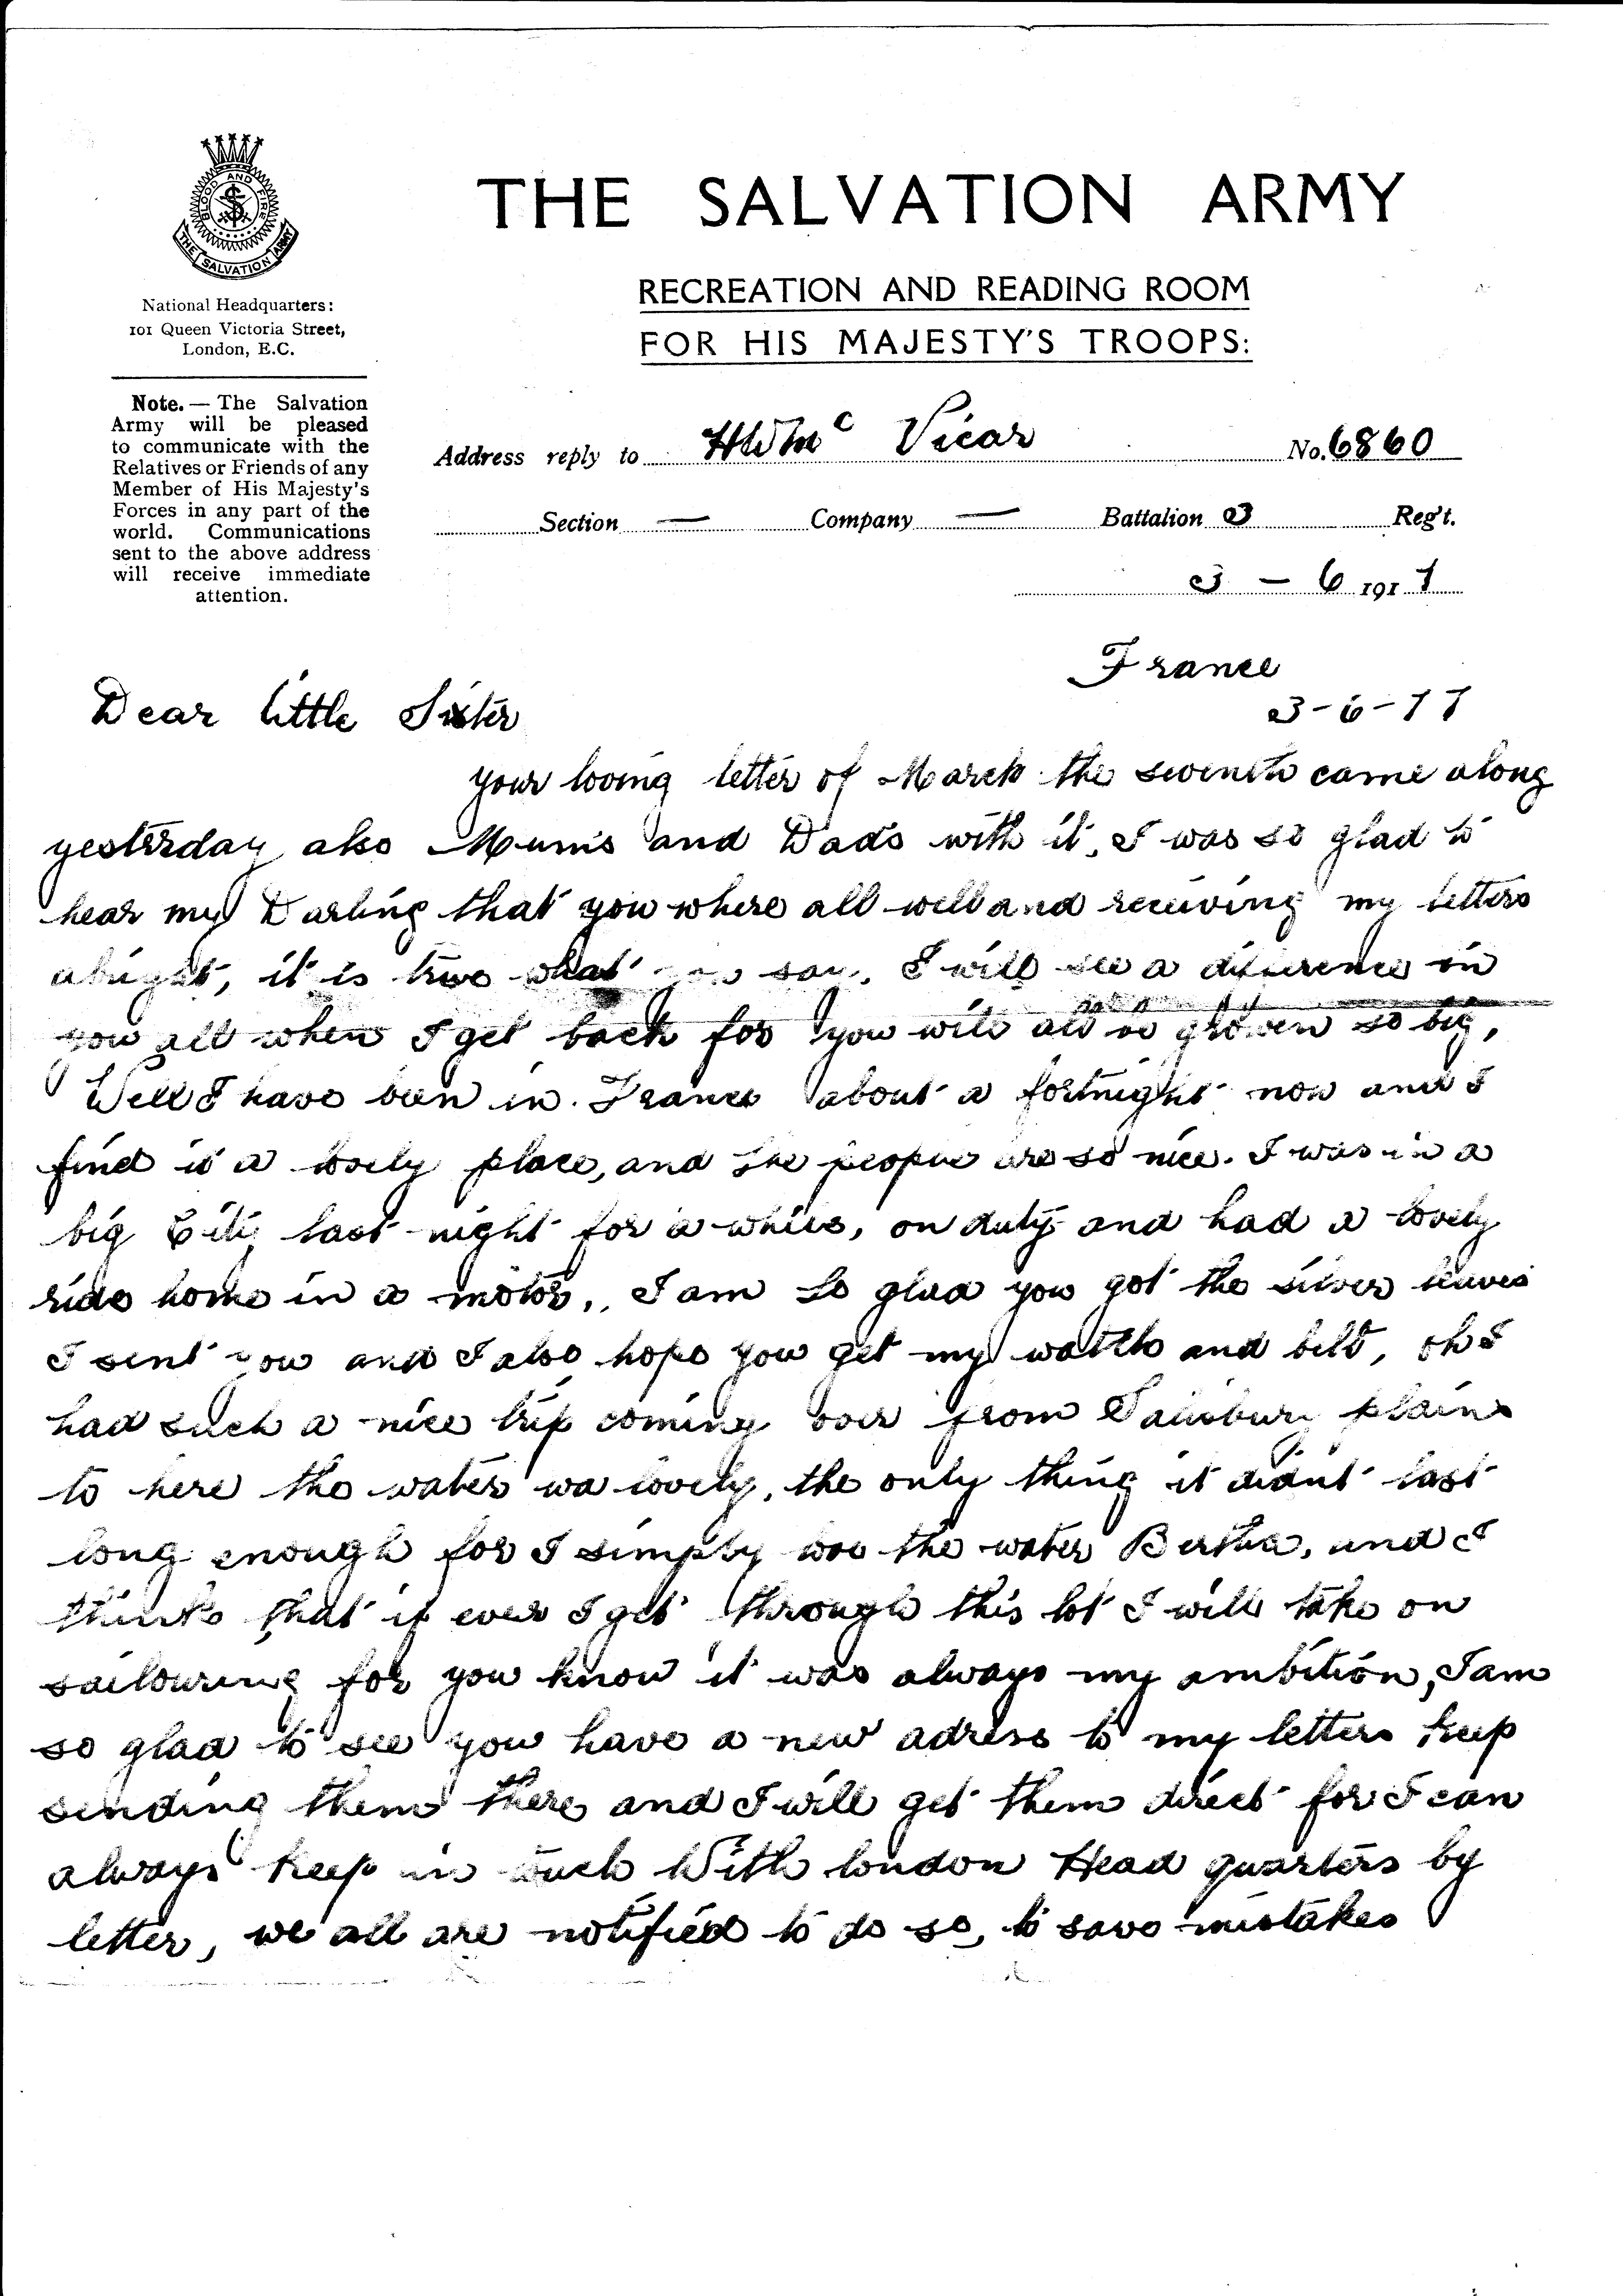 BLOOD AND FIRE
THE SALVATION ARMY
National Headquarters:
101 Queen Victoria Street,
London, E.C.
Note. — The Salvation
Army will be pleased
to communicate with the
Relatives or Friends of any
Member of His Majesty's
Forces in any part of the
world. Communications
sent to the above address
will receive immediate
attention.
THE SALVATION ARMY
RECREATION AND READING ROOM
FOR HIS MAJESTY'S TROOPS:
Address reply to HWMc Vicar No. 6860
Section — Company — Battalion 3 Reg't.
3 – 6 1917
France
3-6-17
Dear little Sister
your loving letter of March the seventh came along
yesterday also Mums and Dads with it, I was so glad to
hear my Darling that you where all well and receiving my letters
alright, it is true what you say, I will see a difference in
you all when I get back for you will all be growen so big,
Well I have been in France about a fortnight now and I
find it a lovely place, and the people are so nice. I was in a
big City last night for a while, on duty and had a lovely
ride home in a motor, I am so glad you got the silver leaves
I sent you and I also hope you get my watch and belt, oh I
had such a nice trip coming over from Salisbury plains
to here the water wa lovely, the only thing it didnt last
long enough for I simply love the water Bertha, and I
think that if ever I get through this lot I will take on
sailouring for you know it was always my ambition, I am
so glad to see you have a new adress to my letters keep
sending them there and I will get them direct for I can
always keep in touch With london Head quarters by
letter, we all are notified to do so, to save mistakes